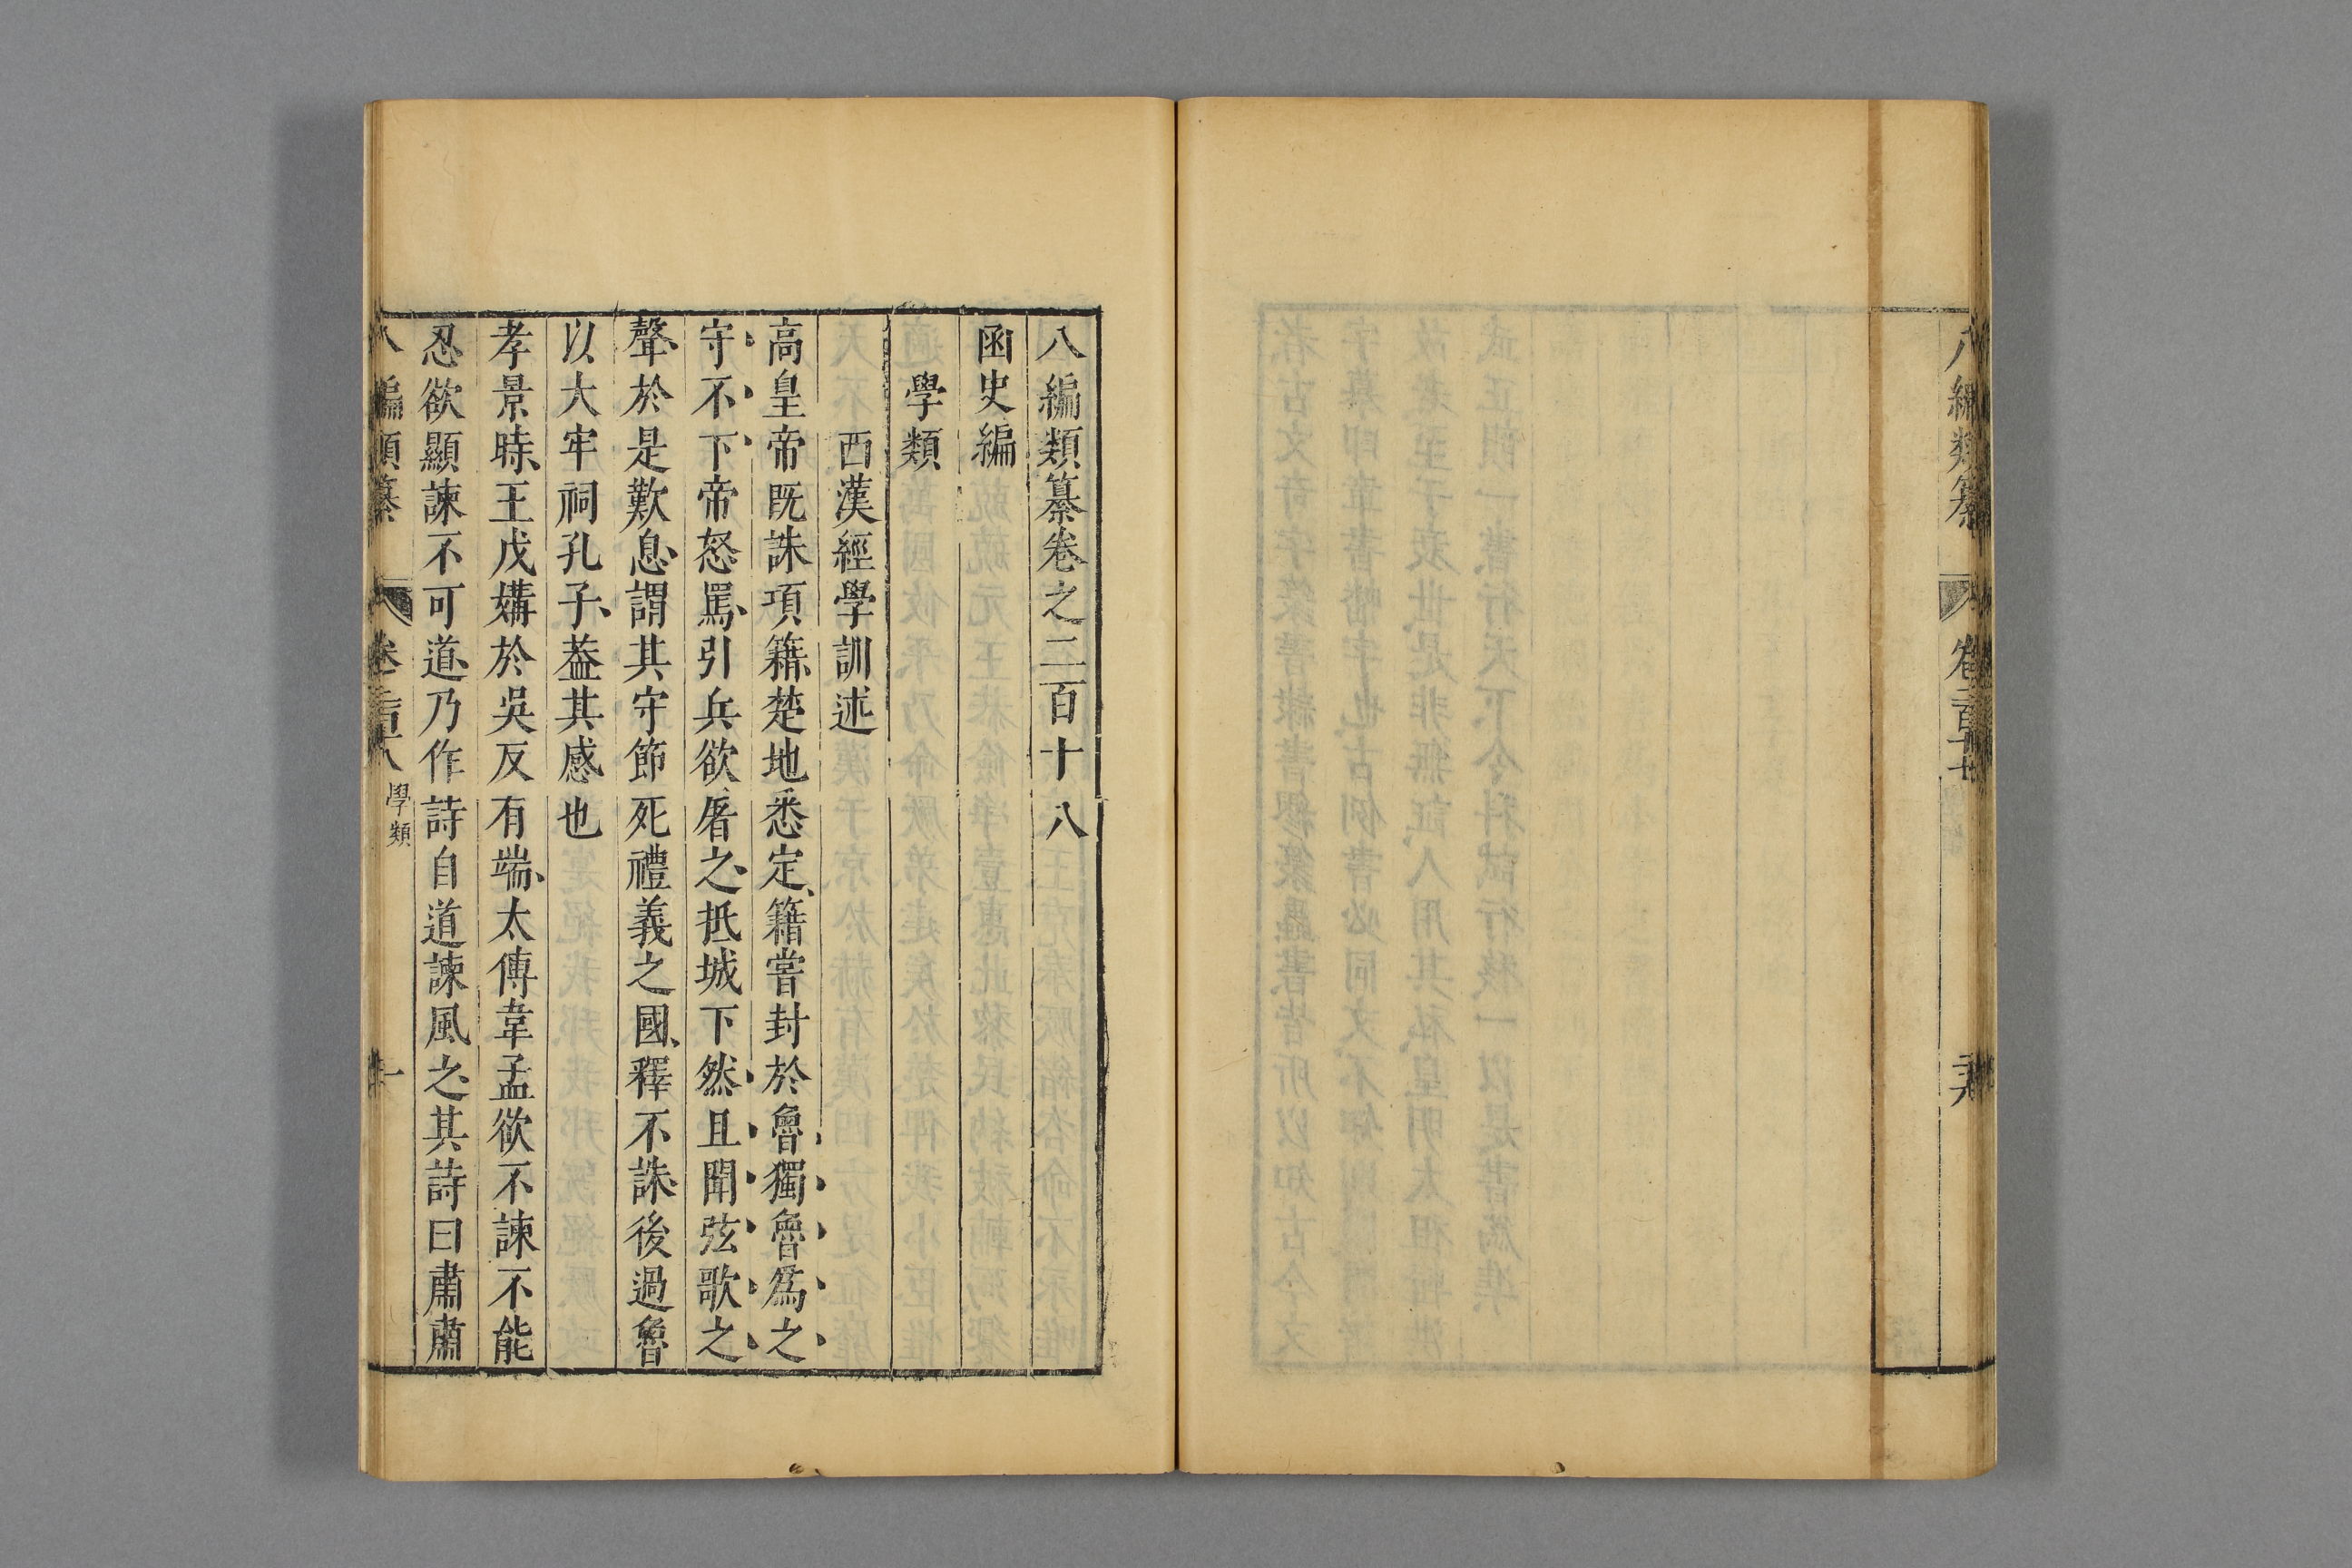 八編類纂
八編類纂卷之二百十八
函史編
學類
西漢經學訓述
高皇帝既誅項籍、楚地悉定、籍嘗封於魯獨魯爲之
守不下帝怒罵、引兵欲屠之、抵城下然且聞弦歌之
聲、於是歎息、謂其守節死禮義之國、釋不誅、後過魯
以大牢祠孔子、葢其感也
孝景時、王戊媾於吳反有端、太傅韋孟欲不諫不能
忍欲顯諫不可道、乃作詩自道諫風之、其詩曰肅肅
八編類纂
卷二百十八
學類
一